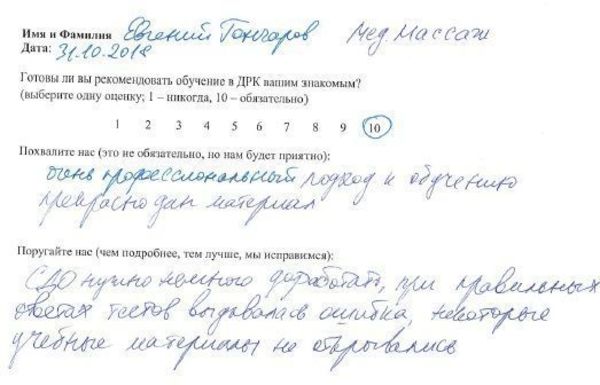 Имя и Фамилия Евгений Гончаров Мед. Массаж
Дата: 31.10.2018
Готовы ли вы рекомендовать обучение в ДРК вашим знакомым?
(выберите одну оценку; 1 – никогда, 10 – обязательно)
1 2 3 4 5 6 7 8 9 10
Похвалите нас (это не обязательно, но нам будет приятно):
очень профессиональный подход к обучению
прекрасно дан материал
Поругайте нас (чем подробнее, тем лучше, мы исправимся):
СДО нужно немного доработать, при правильных
ответах тестов выдавалась ошибка, некоторые
учебные материалы не открывались